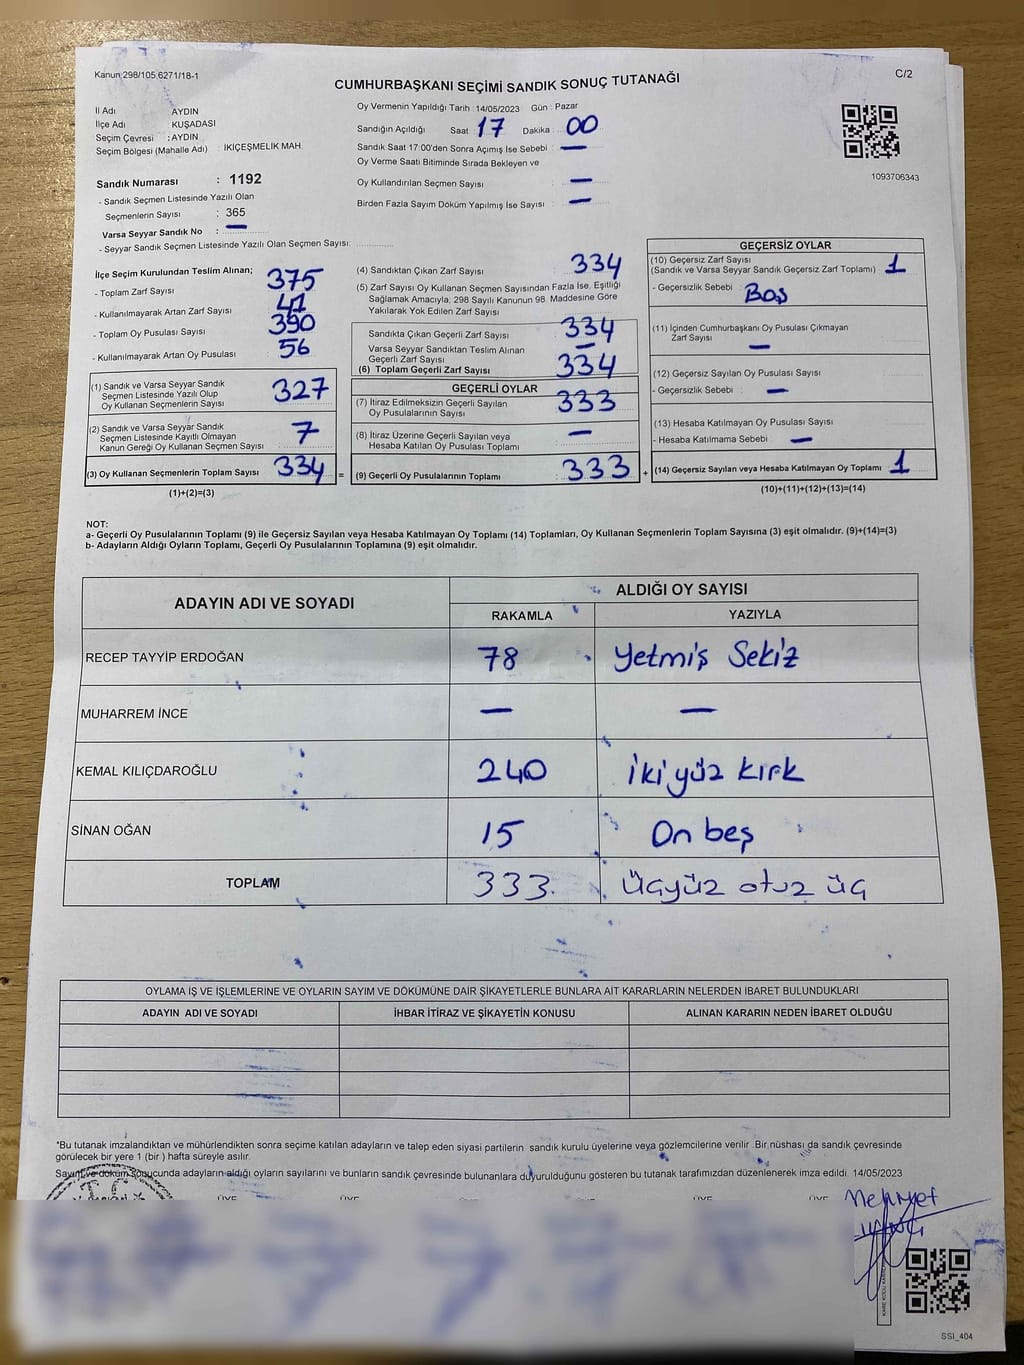 Kanun 298/105,6271/18-1
C/2
CUMHURBAŞKANI SEÇİMİ SANDIK SONUÇ TUTANAĞI
İl Adı AYDIN
İlçe Adı KUŞADASI
Seçim Çevresi : AYDIN
Seçim Bölgesi (Mahalle Adı) : İKİÇEŞMELİK MAH.
Sandık Numarası : 1192
- Sandık Seçmen Listesinde Yazılı Olan
Seçmenlerin Sayısı : 365
Varsa Seyyar Sandık No : —
- Seyyar Sandık Seçmen Listesinde Yazılı Olan Seçmen Sayısı:
Oy Vermenin Yapıldığı Tarih : 14/05/2023 Gün : Pazar
Sandığın Açıldığı Saat 17 Dakika 00
Sandık Saat 17:00'den Sonra Açımış İse Sebebi : —
Oy Verme Saati Bitiminde Sırada Bekleyen ve
Oy Kullandırılan Seçmen Sayısı : —
Birden Fazla Sayım Döküm Yapılmış İse Sayısı : —
1093706343
İlçe Seçim Kurulundan Teslim Alınan;
- Toplam Zarf Sayısı 375
- Kullanılmayarak Artan Zarf Sayısı 41
- Toplam Oy Pusulası Sayısı 390
- Kullanılmayarak Artan Oy Pusulası 56
(1) Sandık ve Varsa Seyyar Sandık
Seçmen Listesinde Yazılı Olup
Oy Kullanan Seçmenlerin Sayısı 327
(2) Sandık ve Varsa Seyyar Sandık
Seçmen Listesinde Kayıtlı Olmayan
Kanun Gereği Oy Kullanan Seçmen Sayısı 7
(3) Oy Kullanan Seçmenlerin Toplam Sayısı 334 =
(1)+(2)=(3)
(4) Sandıktan Çıkan Zarf Sayısı 334
(5) Zarf Sayısı Oy Kullanan Seçmen Sayısından Fazla İse, Eşitliği
Sağlamak Amacıyla; 298 Sayılı Kanunun 98. Maddesine Göre
Yakılarak Yok Edilen Zarf Sayısı
Sandıkta Çıkan Geçerli Zarf Sayısı : 334
Varsa Seyyar Sandıktan Teslim Alınan
Geçerli Zarf Sayısı : —
(6) Toplam Geçerli Zarf Sayısı : 334
GEÇERLİ OYLAR
(7) İtiraz Edilmeksizin Geçerli Sayılan
Oy Pusulalarının Sayısı : 333
(8) İtiraz Üzerine Geçerli Sayılan veya
Hesaba Katılan Oy Pusulası Toplamı : —
(9) Geçerli Oy Pusulalarının Toplamı : 333 +
GEÇERSİZ OYLAR
(10) Geçersiz Zarf Sayısı
(Sandık ve Varsa Seyyar Sandık Geçersiz Zarf Toplamı) : 1
- Geçersizlik Sebebi : Boş
(11) İçinden Cumhurbaşkanı Oy Pusulası Çıkmayan
Zarf Sayısı : —
(12) Geçersiz Sayılan Oy Pusulası Sayısı :
- Geçersizlik Sebebi : —
(13) Hesaba Katılmayan Oy Pusulası Sayısı :
- Hesaba Katılmama Sebebi : —
(14) Geçersiz Sayılan veya Hesaba Katılmayan Oy Toplamı : 1
(10)+(11)+(12)+(13)=(14)
NOT:
a- Geçerli Oy Pusulalarının Toplamı (9) ile Geçersiz Sayılan veya Hesaba Katılmayan Oy Toplamı (14) Toplamları, Oy Kullanan Seçmenlerin Toplam Sayısına (3) eşit olmalıdır. (9)+(14)=(3)
b- Adayların Aldığı Oyların Toplamı, Geçerli Oy Pusulalarının Toplamına (9) eşit olmalıdır.
ADAYIN ADI VE SOYADI ALDIĞI OY SAYISI
RAKAMLA YAZIYLA
RECEP TAYYİP ERDOĞAN 78 Yetmiş Sekiz
MUHARREM İNCE — —
KEMAL KILIÇDAROĞLU 240 iki yüz kırk
SİNAN OĞAN 15 On beş
TOPLAM 333. üçyüz otuz üç
OYLAMA İŞ VE İŞLEMLERİNE VE OYLARIN SAYIM VE DÖKÜMÜNE DAİR ŞİKAYETLERLE BUNLARA AİT KARARLARIN NELERDEN İBARET BULUNDUKLARI
ADAYIN ADI VE SOYADI İHBAR İTİRAZ VE ŞİKAYETİN KONUSU ALINAN KARARIN NEDEN İBARET OLDUĞU
*Bu tutanak imzalandıktan ve mühürlendikten sonra seçime katılan adayların ve talep eden siyasi partilerin sandık kurulu üyelerine veya gözlemcilerine verilir .Bir nüshası da sandık çevresinde
görülecek bir yere 1 (bir ) hafta süreyle asılır.
Sayım ve döküm sonucunda adayların aldığı oyların sayılarını ve bunların sandık çevresinde bulunanlara duyurulduğunu gösteren bu tutanak tarafımızdan düzenlenerek imza edildi. 14/05/2023
T.C.
ÜYE ÜYE ÜYE ÜYE ÜYE
Mehmet
SSİ_404